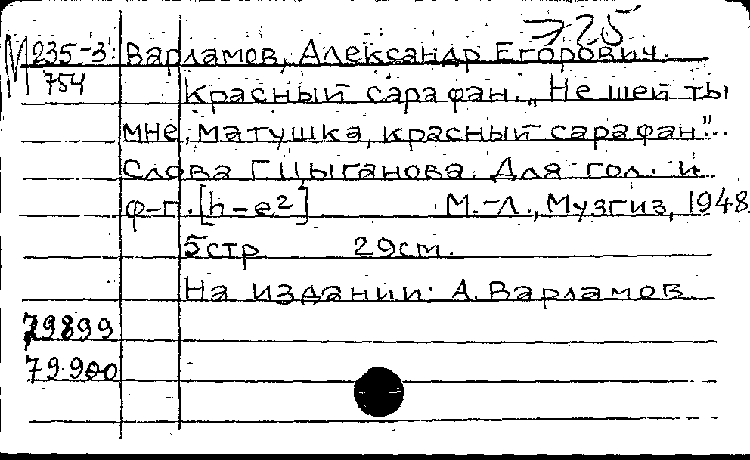 725
М 235-3 Варламов, Александр Егорович.
754 Красный сарафан. „Не шей ты
мне, матушка, красный сарафан"..
Слова Г. Цыганова. Для гол. и
ф-п. [h-e²] М.-Л., Музгиз, 1948
5стр 29см.
На издании: А. Варламов.
79899
79.900